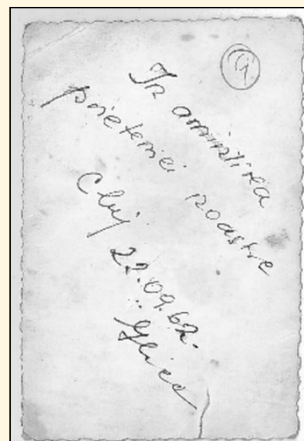 G
In amintirea
prieteniei noastre
Cluj 22.09.62.